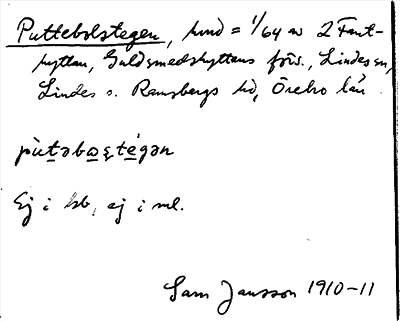 Puttebolstegen, hmd = 1/64 av 2 Fant-
hyttan, Guldsmedshyttans förs., Lindes sn,
Lindes o. Ramsbergs hd, Örebro län.
pùtəbɷștégən
Ej i Jb, ej i ml.
Sam Jansson 1910-11